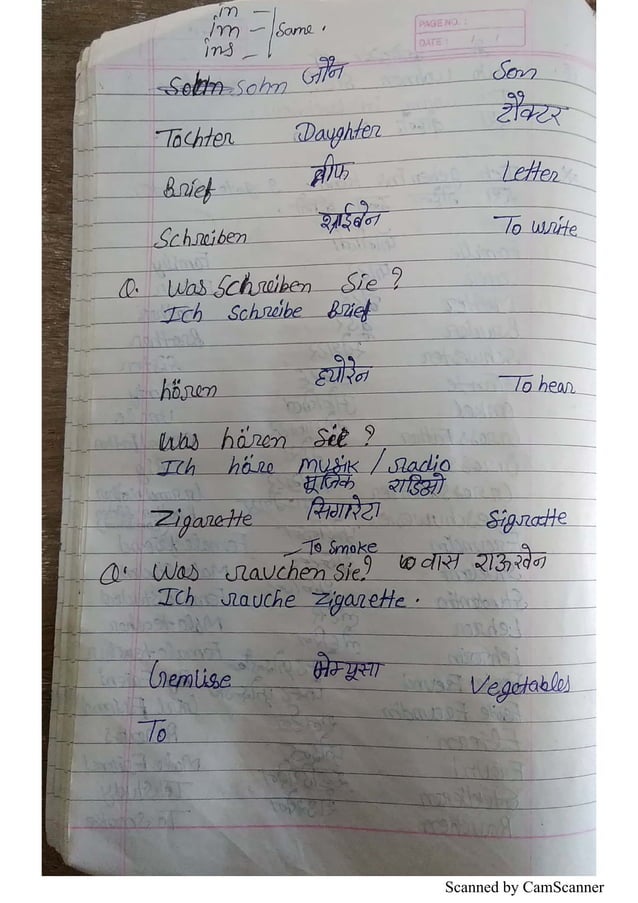 in –
im – Same.
ins –
PAGE NO. :
DATE : / /
sohn जौन Son
Tochter Daughter टौक्टर
Brief ब्रीफ Letter
Schreiben श्राईबेन To write
Q. Was Schreiben Sie ?
Ich Schreibe Brief
hören हयोरेन To hear
Was hören Sie ?
Ich häre musik / radio
मूजिक राडिओ
Zigarette सिगारेटा Sigratte
– To smoke
Q. Was rauchen Sie? वास राऊखेन
Ich rauche Zigarette.
Gemüse गेम्यूसा Vegetables
To
Scanned by CamScanner